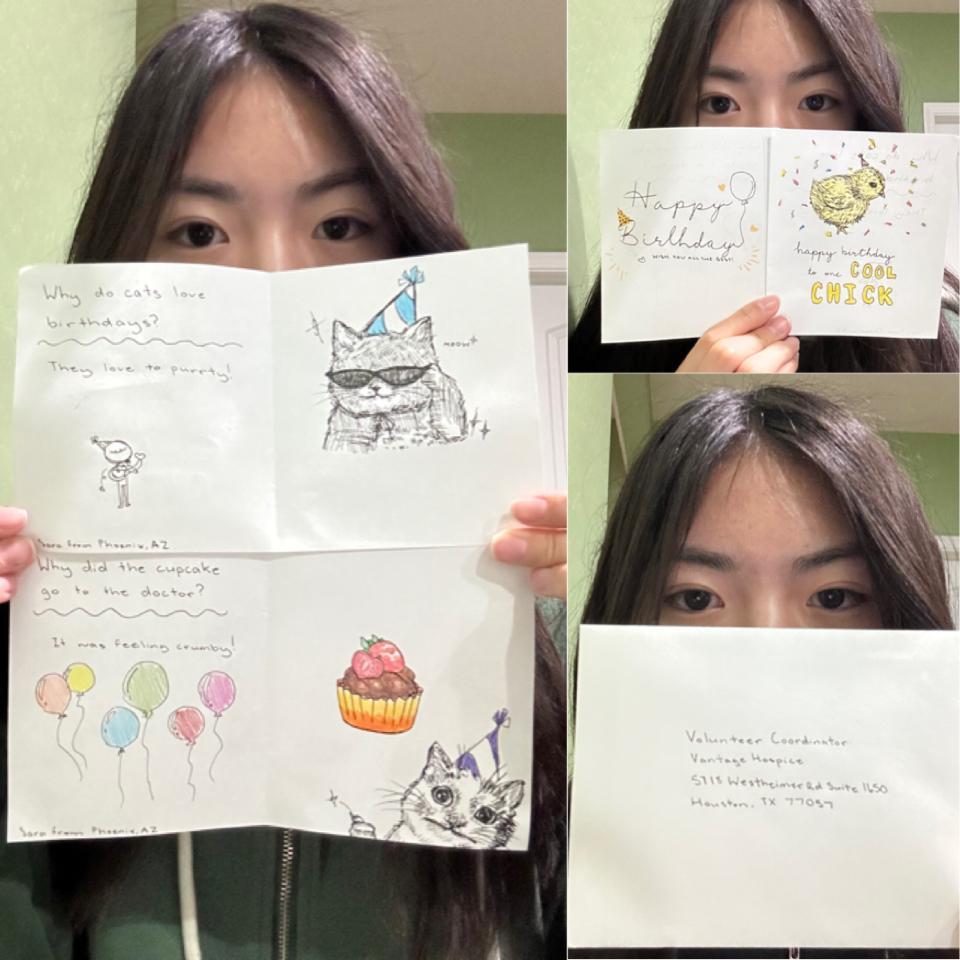 Why do cats love
birthdays?
They love to purrty!
meow
Sara from Phoenix, AZ
Why did the cupcake
go to the doctor?
It was feeling crumby!
Sara from Phoenix, AZ
Happy
Birthday
WISH YOU ALL THE BEST!
happy birthday
to one COOL
CHICK
Volunteer Coordinator
Vantage Hospice
5718 Westheimer Rd Suite 1650
Houston, TX 77057